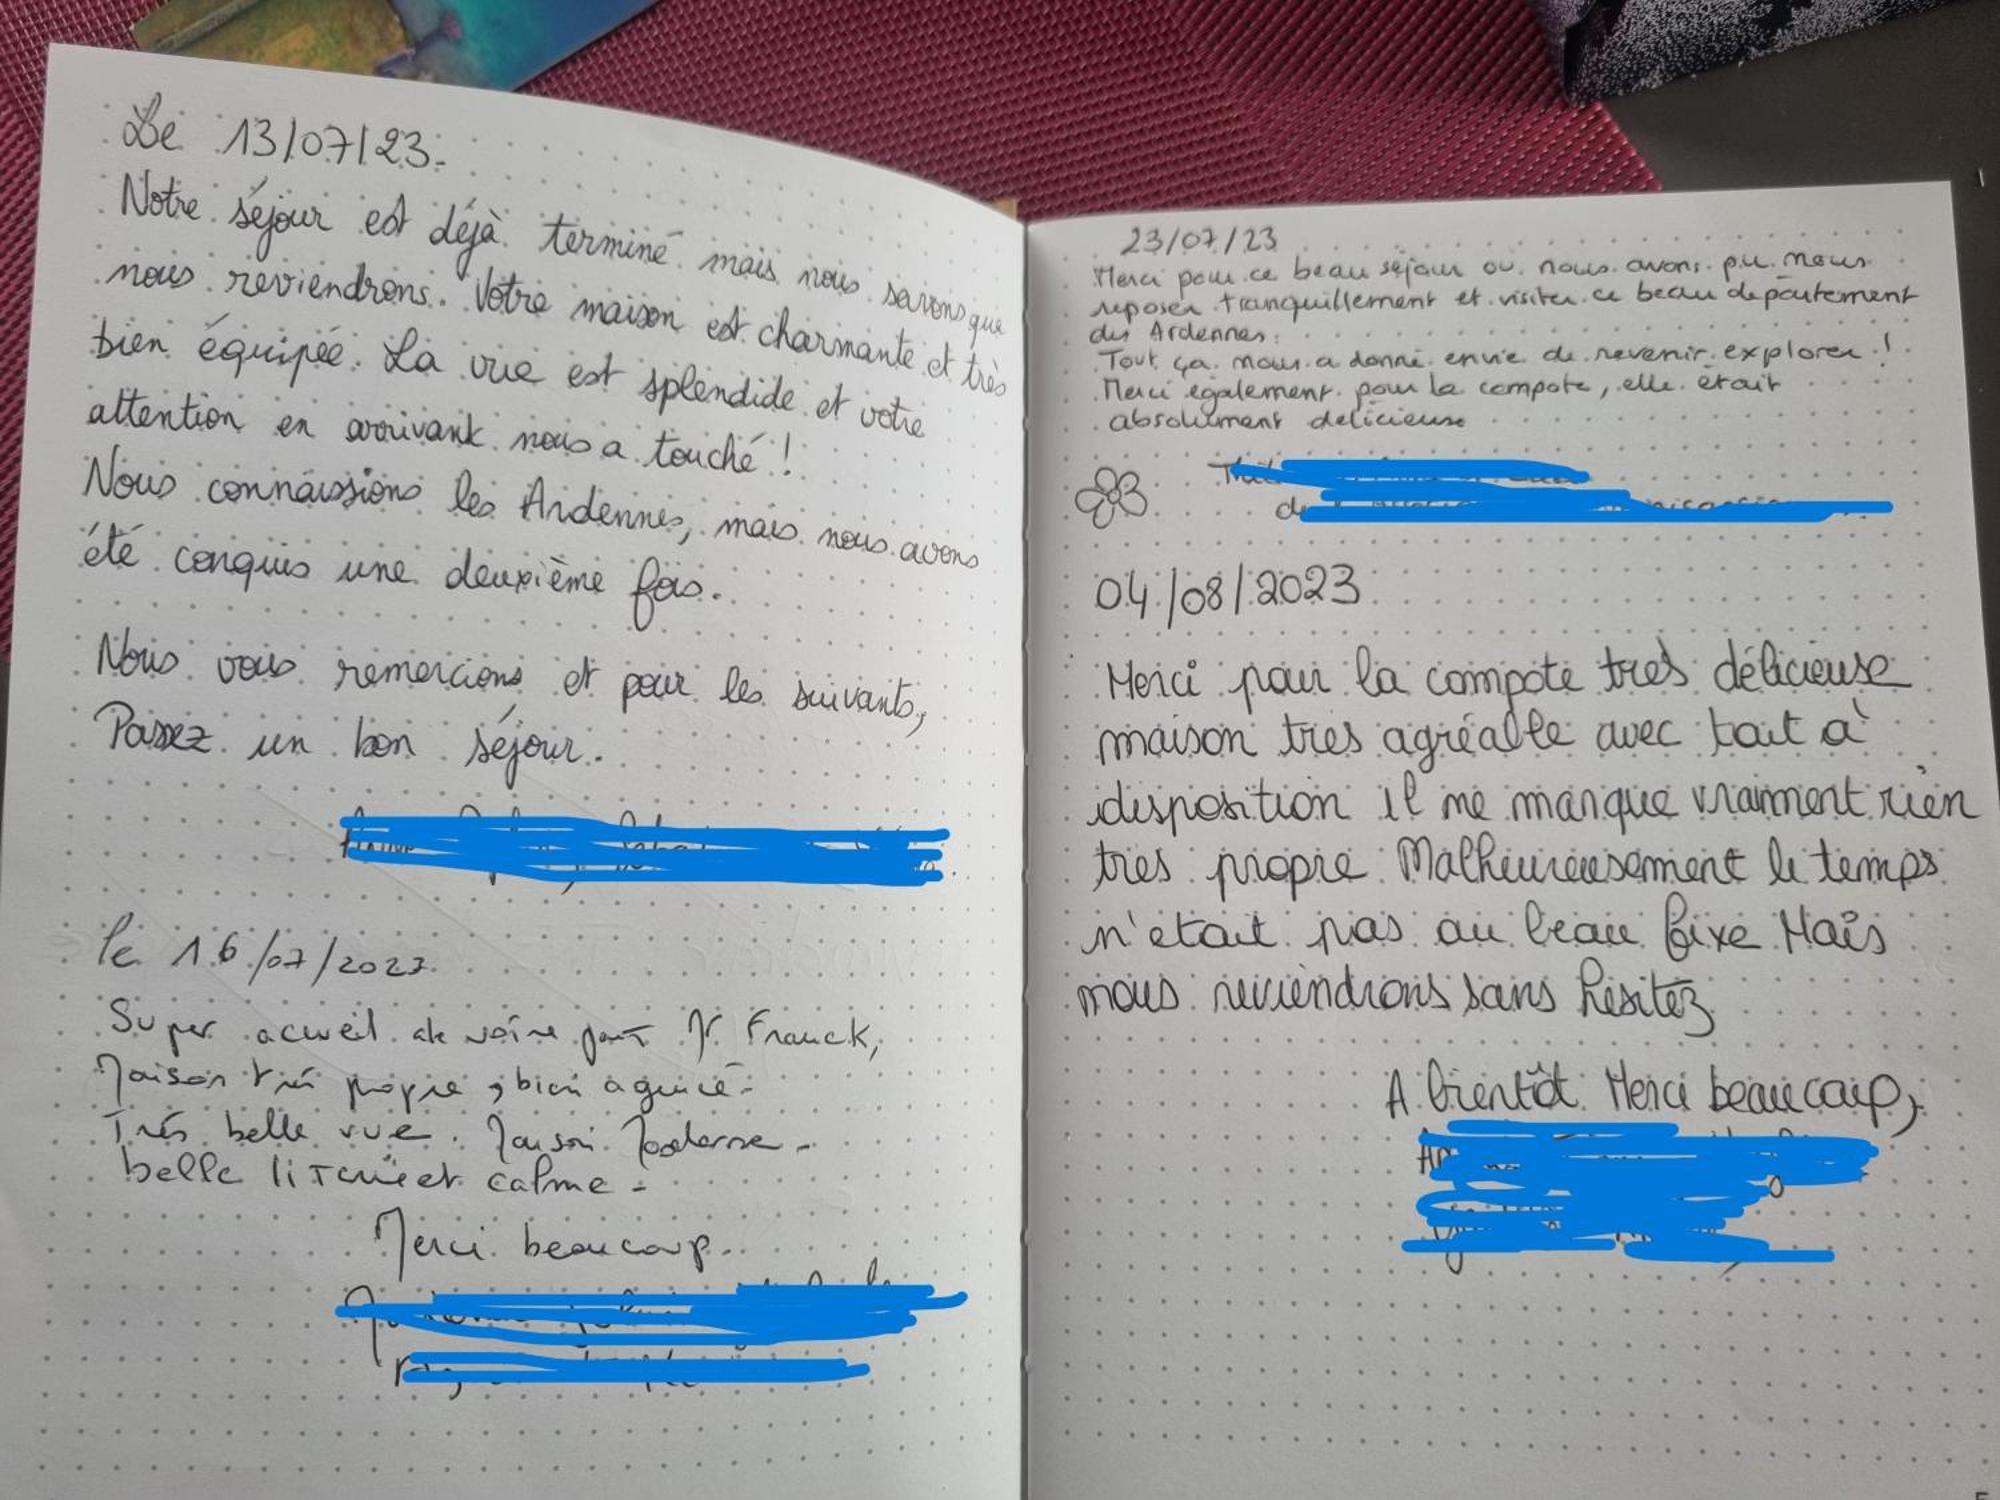 Le 13/07/23.
Notre séjour est déjà terminé mais nous savons que
nous reviendrons. Votre maison est charmante et très
bien équipée. La vue est splendide et votre
attention en arrivant nous a touché !
Nous connaissions les Ardennes, mais nous avons
été conquis une deuxième fois.
Nous vous remercions et pour les suivants,
Passez un bon séjour.
le 16/07/2023
Super accueil de votre part Mr Franck,
Maison très propre, bien agencé.
Très belle vue. Maison Moderne.
belle literie et calme.
Merci beaucoup.
23/07/23
Merci pour ce beau séjour ou nous avons pu nous
reposer tranquillement et visiter ce beau département
des Ardennes.
Tout ça nous a donné envie de revenir explorer !
Merci également pour la compote, elle était
absolument delicieuse
04/08/2023
Merci pour la compote tres délicieuse
maison tres agréable avec tout à
disposition il ne manque vraiment rien
tres propre Malheureusement le temps
n'était pas au beau fixe Mais
nous reviendrons sans hésitez
A bientôt Merci beaucoup,